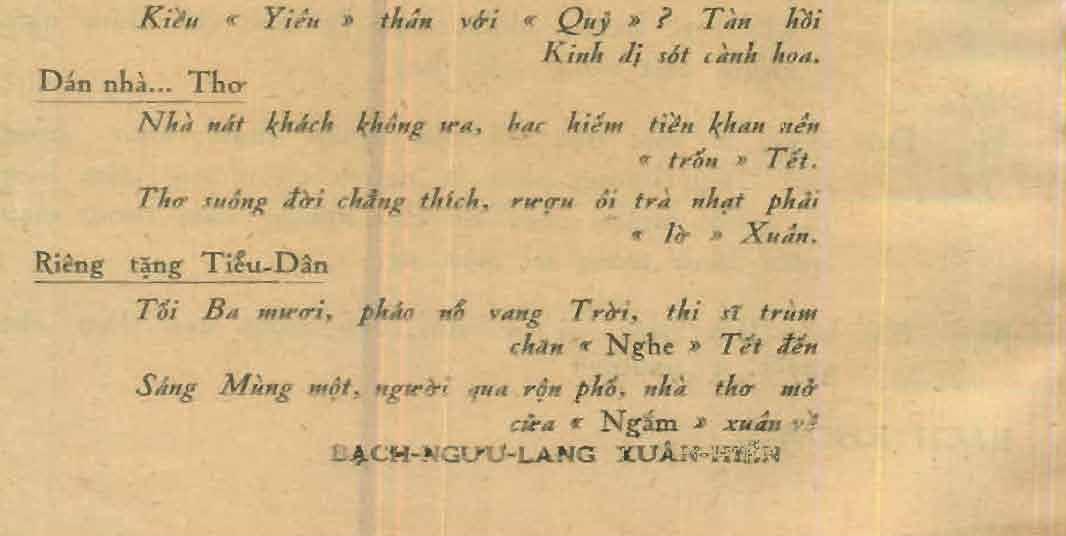 Kiều « Yiêu » thân với « Quỷ » ? Tàn hồi
Kinh dị sót cành hoa.
Dán nhà... Thơ
Nhà nát khách không ưa, bạc hiếm tiền khan nên
« trốn » Tết.
Thơ suông đời chẳng thích, rượu ôi trà nhạt phải
« lờ » Xuân.
Riêng tặng Tiểu-Dân
Tối Ba mươi, pháo nổ vang Trời, thi sĩ trùm
chăn « Nghe » Tết đến
Sáng Mùng một, người qua rộn phố, nhà thơ mở
cửa « Ngắm » xuân về
BẠCH-NGƯU-LANG XUÂN-HIẾN